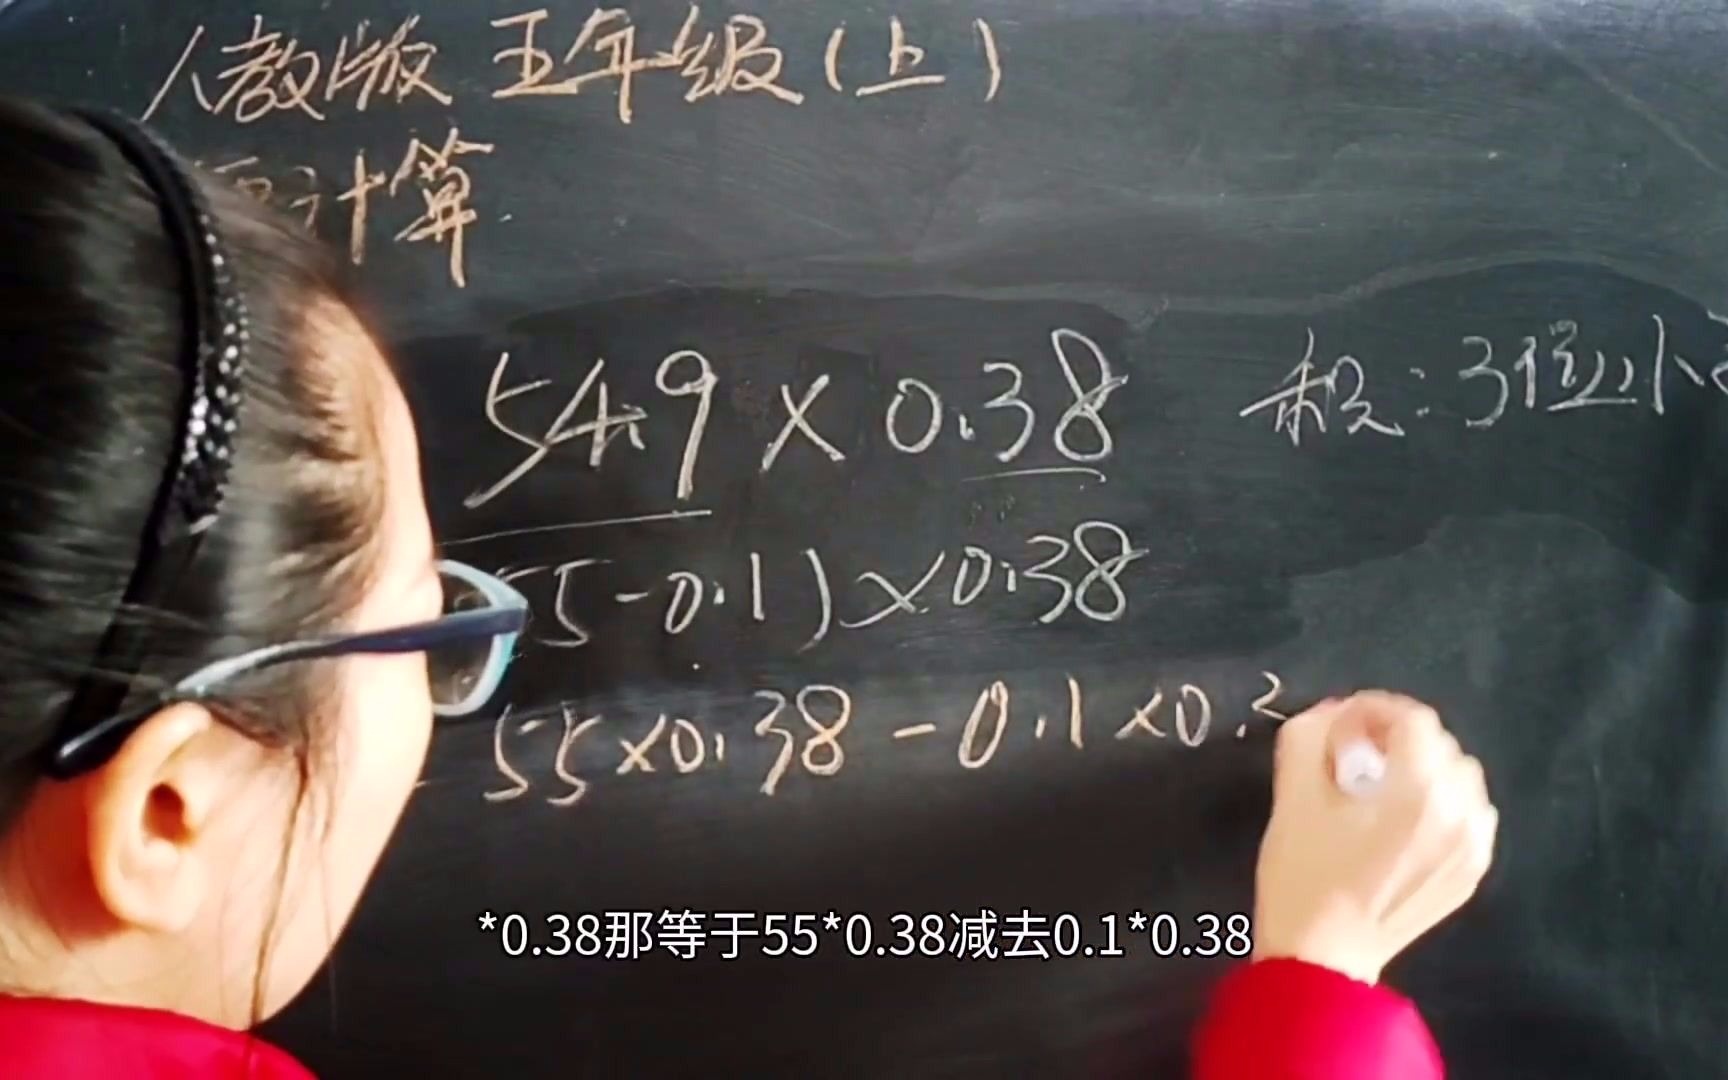 人教版 五年级(上)
计算
54.9×0.38 积:3位小
55-0.1)×0.38
55×0.38-0.1×0.3
*0.38那等于55*0.38减去0.1*0.38